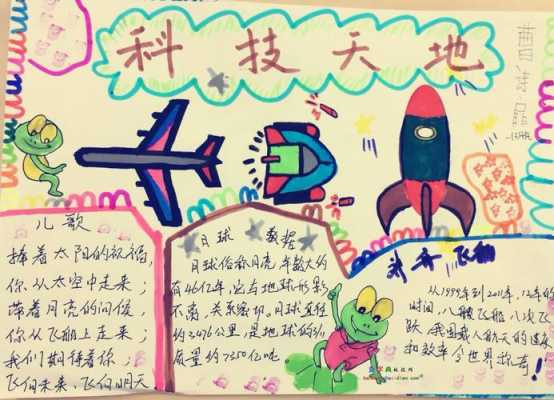 科技天地
儿歌
捧着太阳的祝福,
你从太空中走来;
带着月亮的问候,
你从飞船上走来;
我们期待着你;
飞向未来、飞向明天
月球 数据
月球俗称月亮,年龄大约
有46亿年,它与地球形影
不离,关系密切,月球直径
约3476公里,是地球的
质量约7350亿吨
神舟飞船
从1999年到2011年,12年的
时间,八艘飞船,八次飞
跃,我国载人航天的速度
和效率令世界称奇!